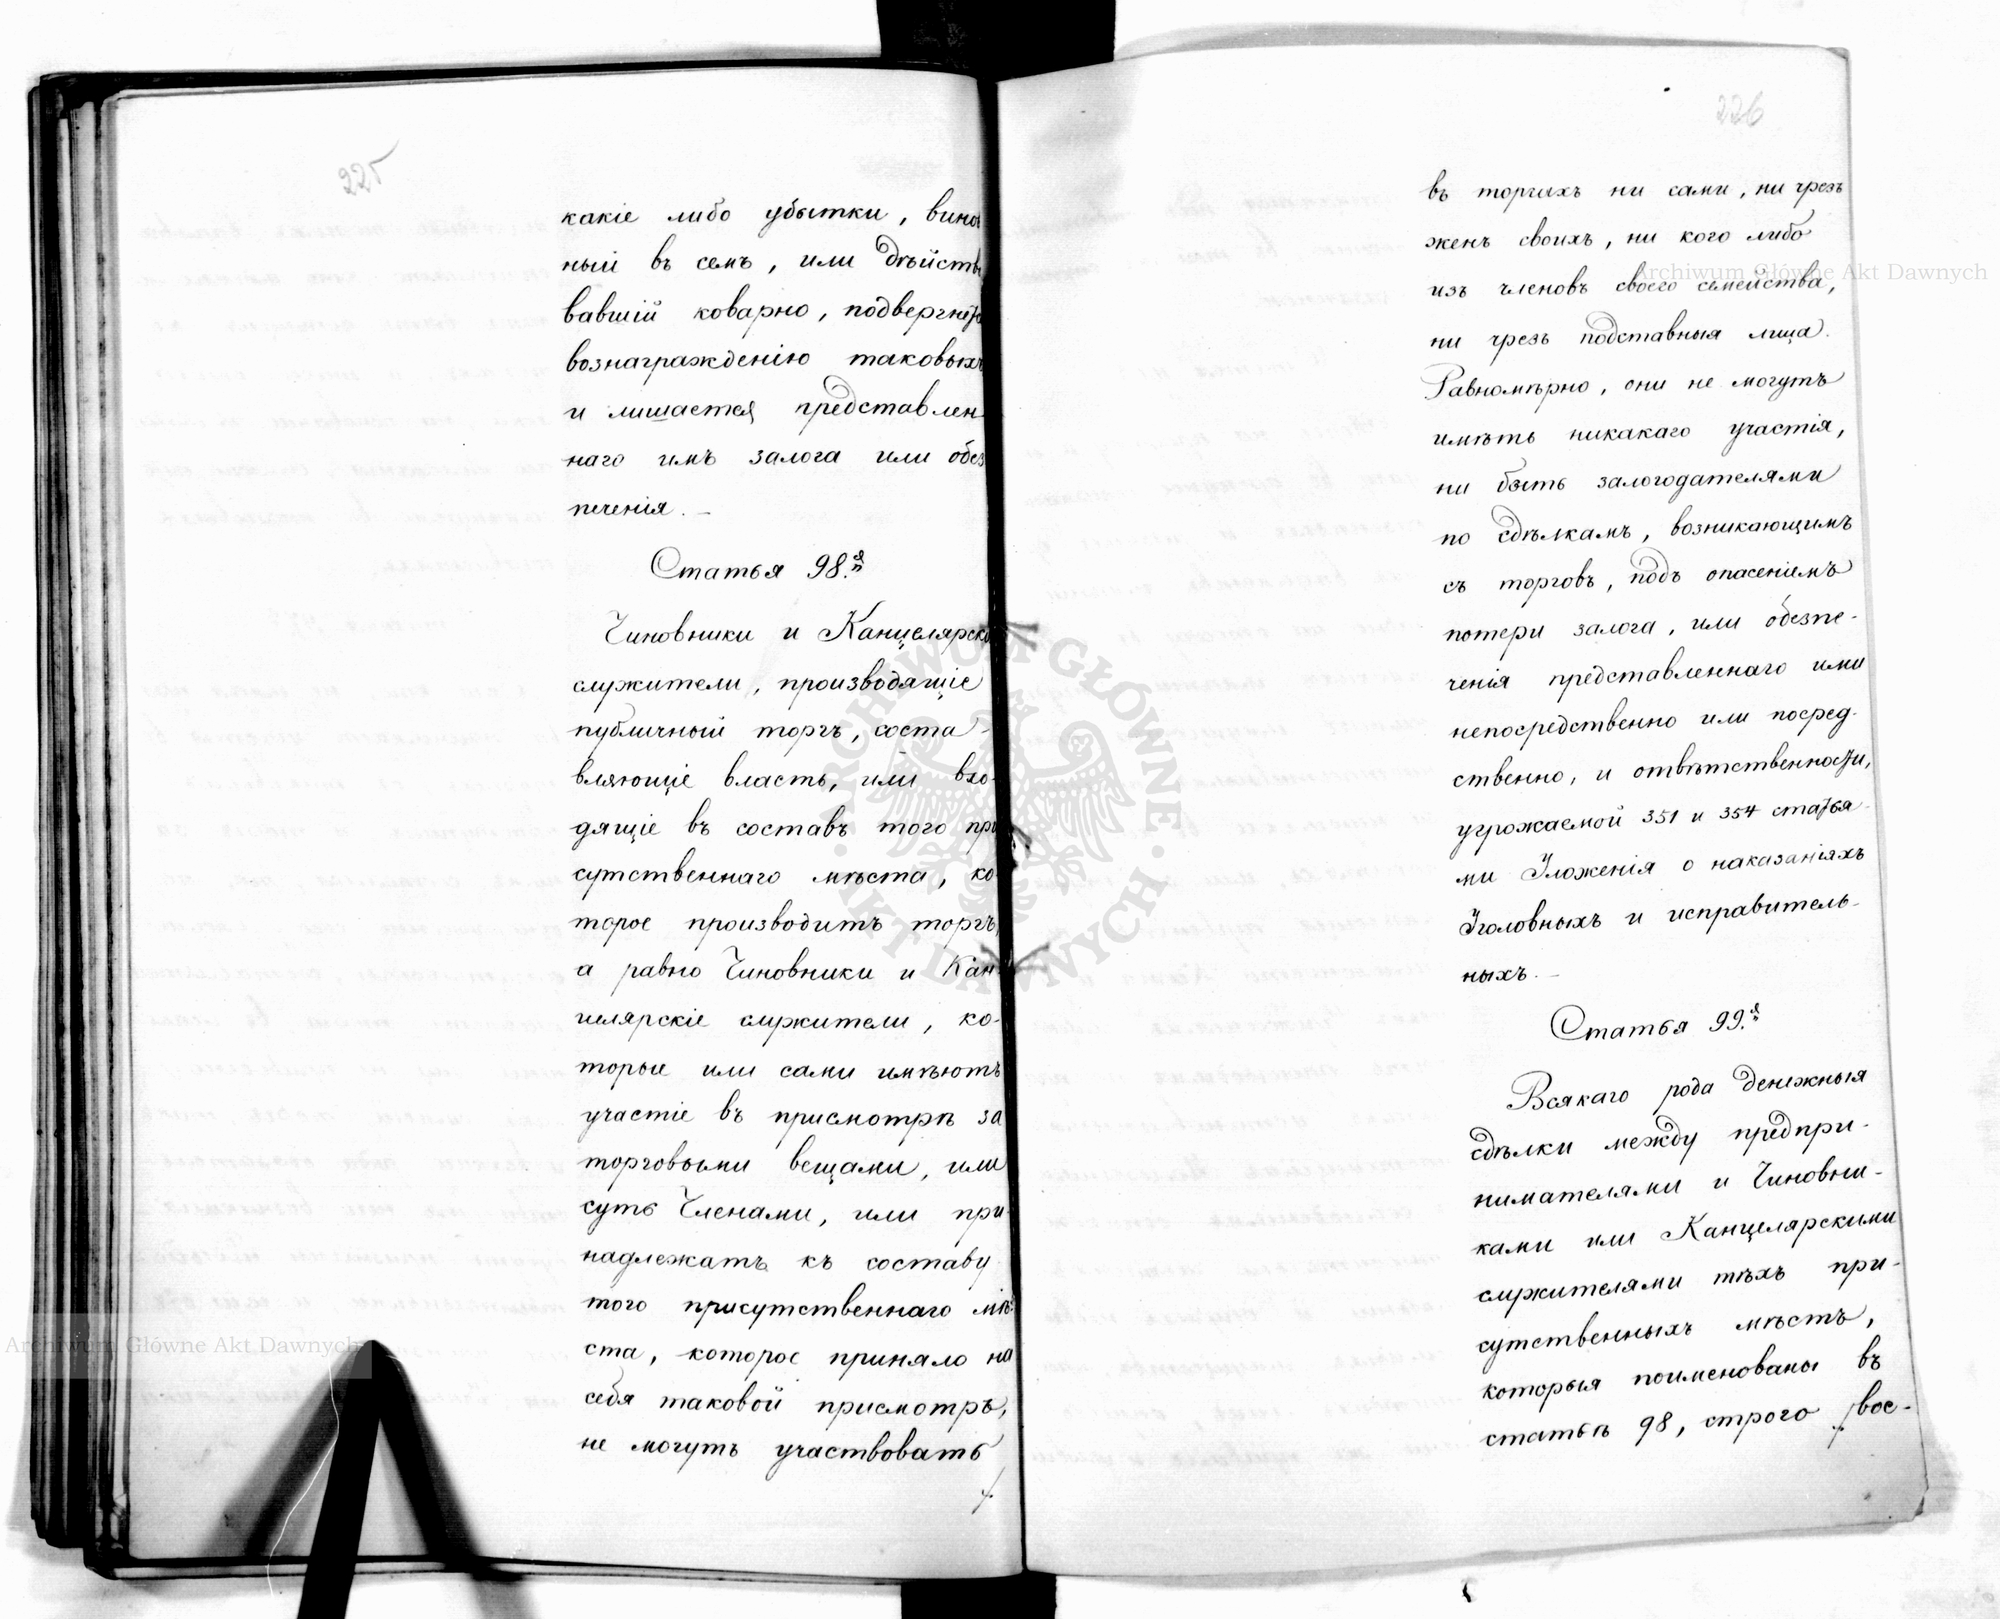 225
какіе либо убытки, винов
ный въ семъ, или дѣйство
вавшій коварно, подвергнется
вознагражденію таковыхъ
и лишается представлен
наго имъ залога или обез
печенія. —
Статья 98.я
Чиновники и Канцелярскі
служители, производящіе
публичный торгъ, соста-
вляющіе власть, или вхо-
дящіе въ составъ того при
сутственнаго мѣста, ко-
торое производитъ торгъ,
а равно Чиновники и Кан-
целярскіе служители, ко-
торые или сами имѣютъ
участіе въ присмотрѣ за
торговыми вещами, или
суть Членами, или при-
надлежатъ къ составу
того присутственнаго мѣ-
ста, которое приняло на
себя таковой присмотръ,
не могутъ участвовать
./.
226
въ торгахъ ни сами, ни чрезъ
женъ своихъ, ни кого либо
изъ членовъ своего семейства,
ни чрезъ подставныя лица.
Равномѣрно, они не могутъ
имѣть никакаго участія,
ни быть залогодателями
по сдѣлкамъ, возникающимъ
съ торговъ, подъ опасеніемъ
потери залога, или обезпе-
ченія представленнаго ими
непосредственно или посред-
ственно, и отвѣтственности,
угрожаемой 351 и 354 статья-
ми Уложенія о наказаніяхъ
Уголовныхъ и исправитель-
ныхъ. —
Статья 99.я
Всякаго рода денежныя
сдѣлки между предпри-
нимателями и Чиновни-
ками или Канцелярскими
служителями тѣхъ при-
сутственныхъ мѣстъ,
которыя поименованы въ
статьѣ 98, строго вос-
./.
Archiwum Główne Akt Dawnych
Archiwum Główne Akt Dawnych
ARCHIWUM GŁÓWNE · AKT DAWNYCH ·